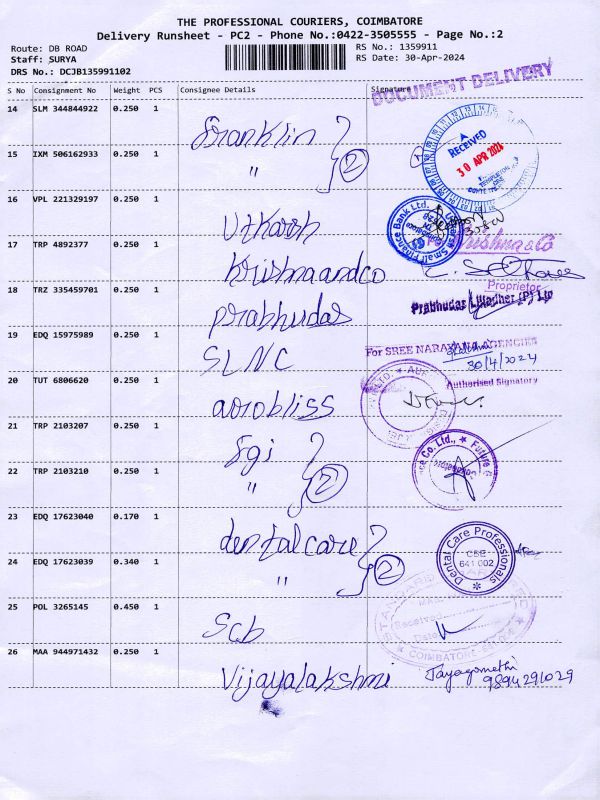 THE PROFESSIONAL COURIERS, COIMBATORE
Delivery Runsheet - PC2 - Phone No.:0422-3505555 - Page No.:2
Route: DB ROAD
Staff: SURYA
DRS No.: DCJB135991102
RS No.: 1359911
RS Date: 30-Apr-2024
DOCUMENT DELIVERY
S No Consignment No Weight PCS Consignee Details Signature
14 SLM 344844922 0.250 1 Franklin
RECEIVED
30 APR 2024
15 IXM 506162933 0.250 1 " 2
16 VPL 221329197 0.250 1 Utkarsh
Small Finance Bank Ltd.
17 TRP 4892377 0.250 1 Krishnaandco
For Krishna & Co
Proprietor
18 TRZ 335459701 0.250 1 Prabhudas
Prabhudas Lilladher (P) Ltd
19 EDQ 15975989 0.250 1 SLNC
For SREE NARAYANA AGENCIES
30/4/2024
Authorised Signatory
20 TUT 6806620 0.250 1 aorobliss
21 TRP 2103207 0.250 1 Sgi
Co. Ltd., ★ Future
22 TRP 2103210 0.250 1 " 2
23 EDQ 17623040 0.170 1 dentalcare
Dental Care Professionals
CBE
641 002
24 EDQ 17623039 0.340 1 " 2
25 POL 3265145 0.450 1 Scb
Received
Date
COIMBATORE
26 MAA 944971432 0.250 1 Vijayalakshmi
Jayagomathi
9894291029